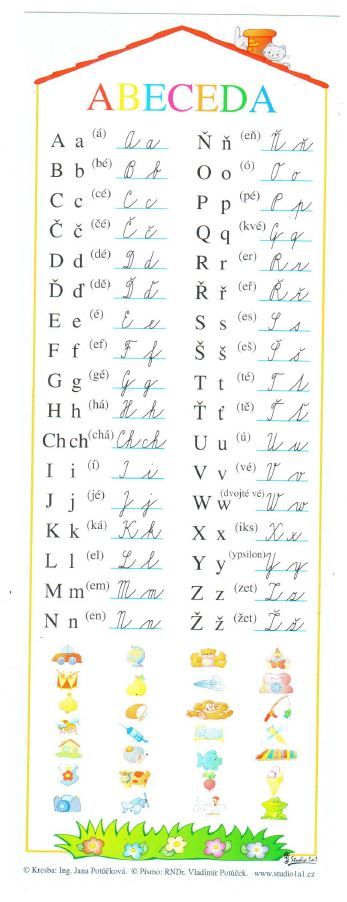 ABECEDA
A a (á) A a
B b (bé) B b
C c (cé) C c
Č č (čé) Č č
D d (dé) D d
Ď ď (dě) Ď ď
E e (é) E e
F f (ef) F f
G g (gé) G g
H h (há) H h
Ch ch (chá) Ch ch
I i (í) I i
J j (jé) J j
K k (ká) K k
L l (el) L l
M m (em) M m
N n (en) N n
Ň ň (eň) Ň ň
O o (ó) O o
P p (pé) P p
Q q (kvé) Q q
R r (er) R r
Ř ř (eř) Ř ř
S s (es) S s
Š š (eš) Š š
T t (té) T t
Ť ť (tě) Ť ť
U u (ú) U u
V v (vé) V v
W w (dvojté vé) W w
X x (iks) X x
Y y (ypsilon) Y y
Z z (zet) Z z
Ž ž (žet) Ž ž
Studio 1a1
© Kresba: Ing. Jana Potůčková. © Písmo: RNDr. Vladimír Potůček. www.studio1a1.cz